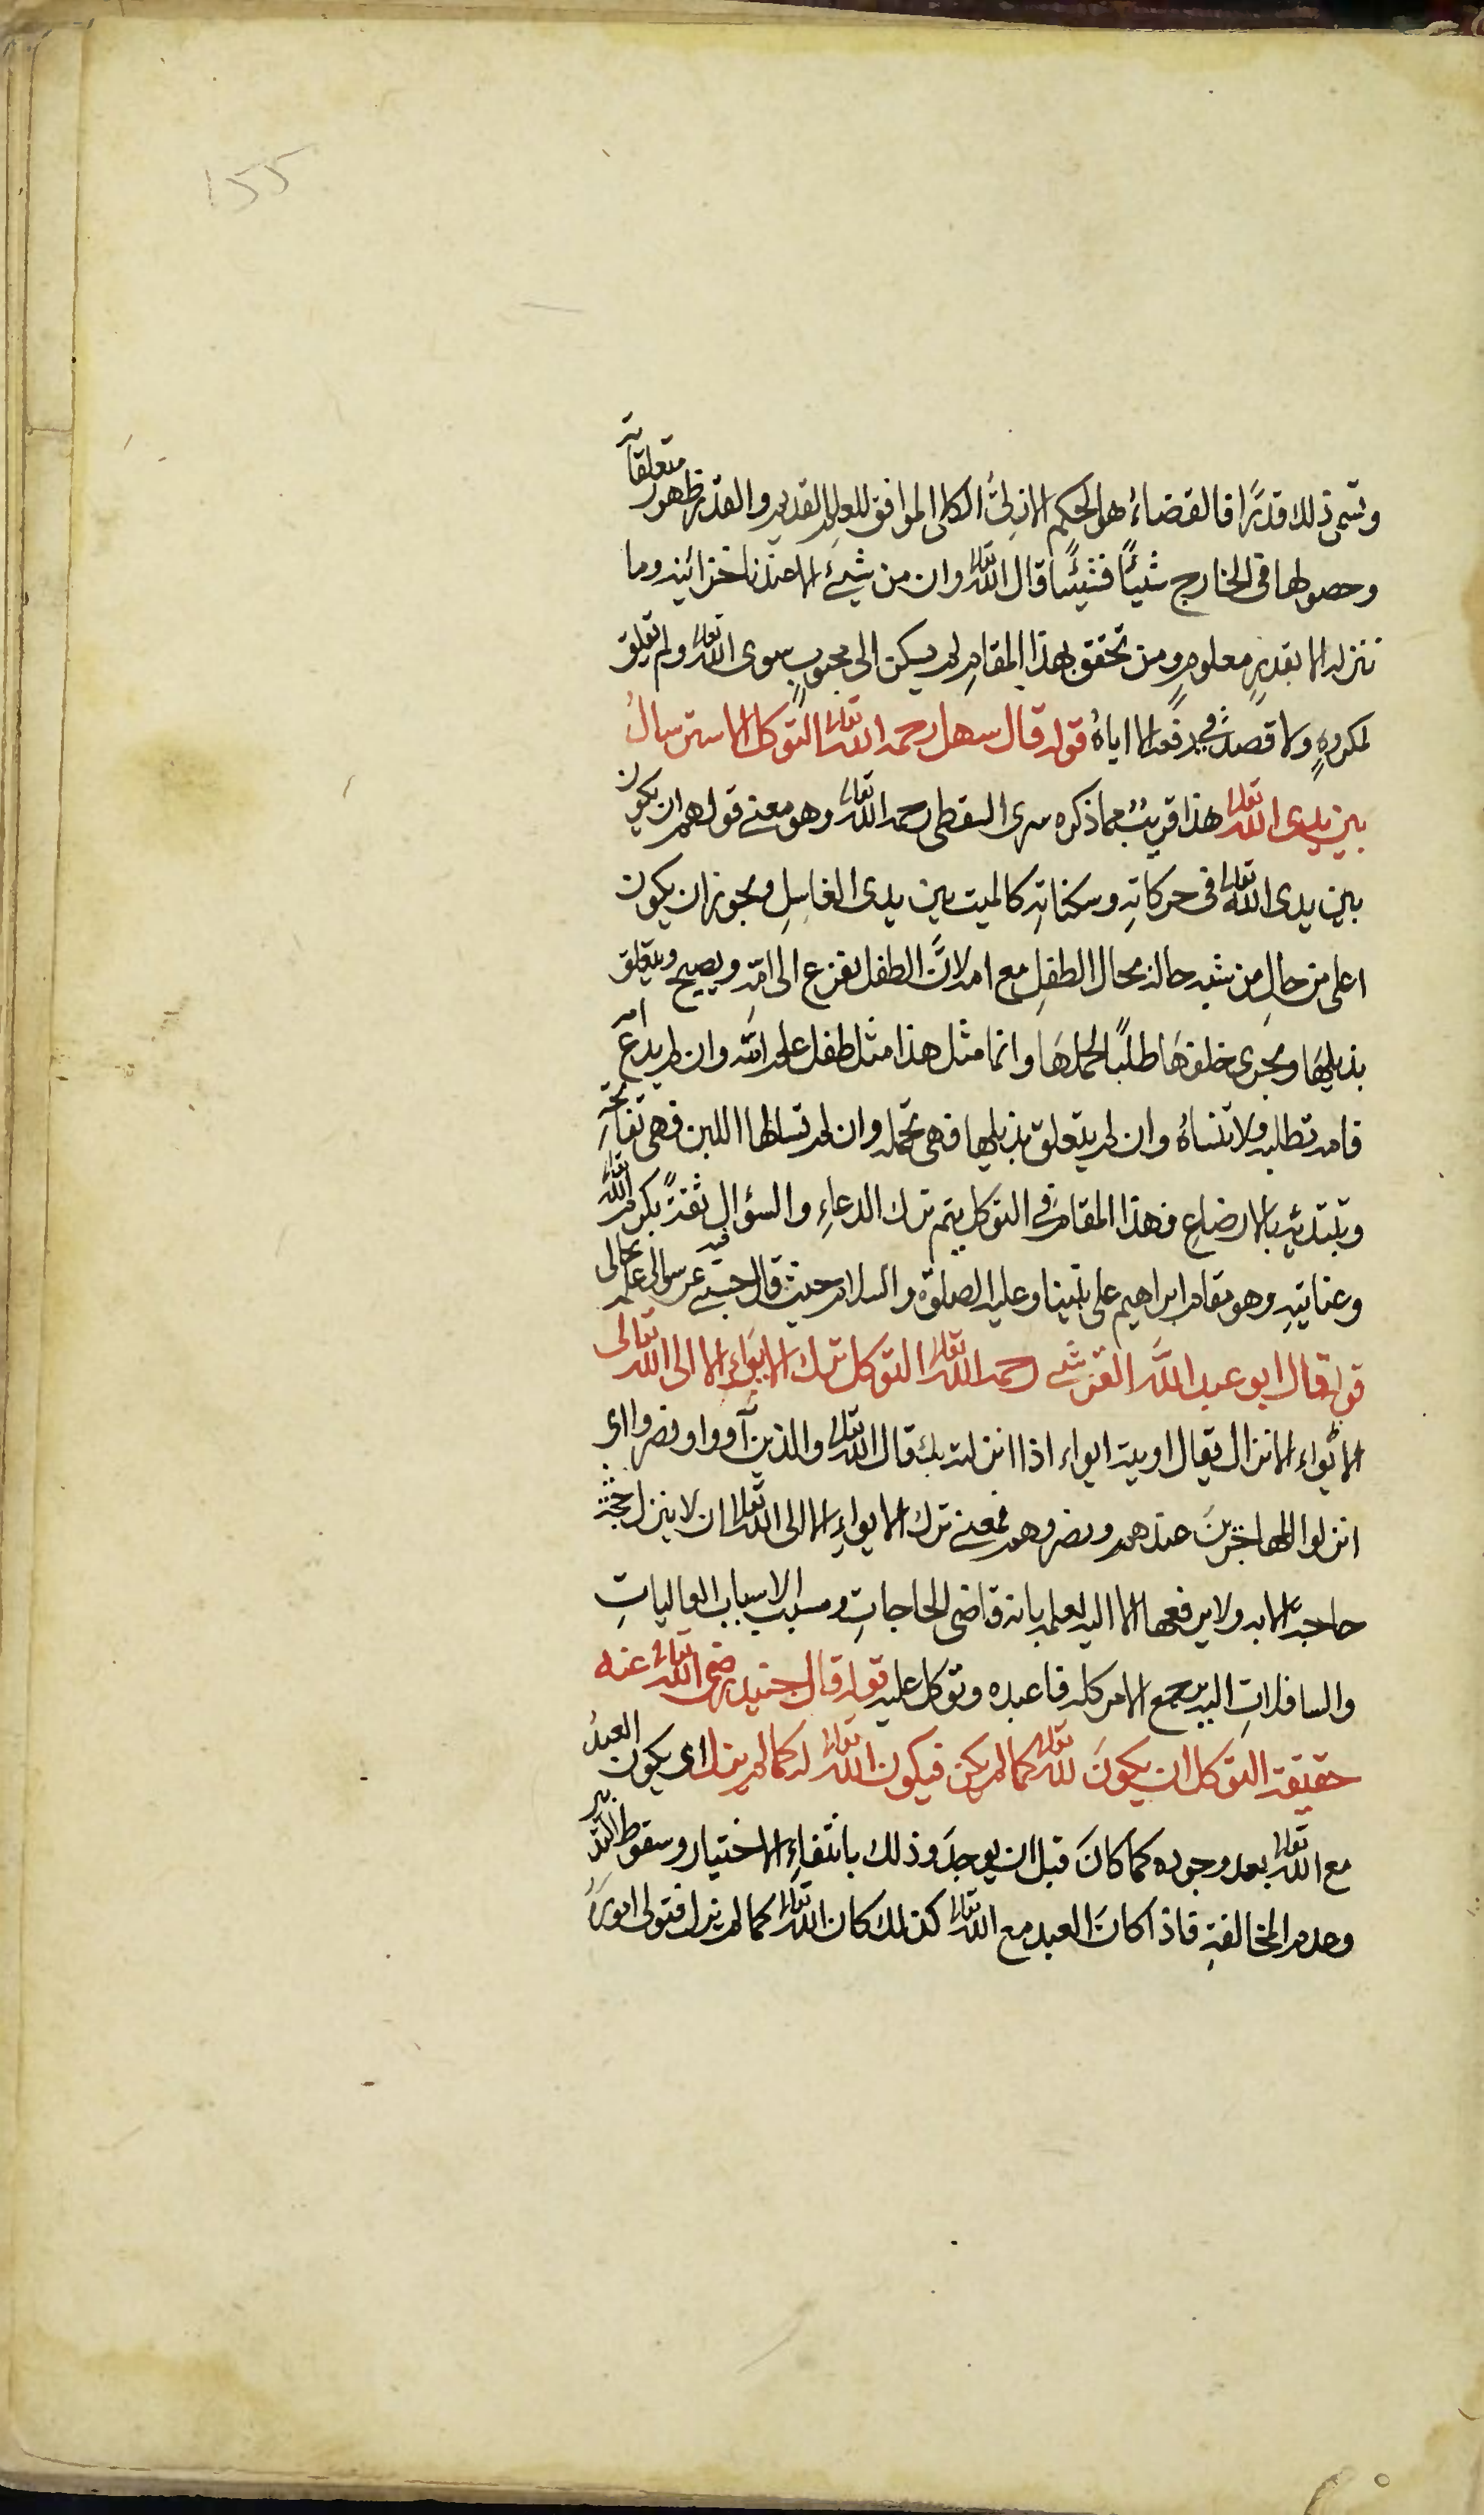 155
وتسمى ذلك قدرًا فالقضاءُ هو الحكم الازلىُّ الكلى الموافق للعلم القديم والقدر ظهور متعلقاته
وحصولها فى الخارج شيئًا فشيئًا قال الله تعالى وان من شىء الا عندنا خزائنه وما
ننزله الا بقدرٍ معلومٍ ومن تحقق بهذا المقامِ لم يسكن الى محبوبٍ سوى الله تعالى ولم تعلق
لمكروهٍ ولا قصد فى دفعه الا اياهُ قوله قال سهل رحمه الله تعالى التوكل الاسترسالُ
بين يدى الله تعالى هذا قريبٌ مما ذكره سرى السقطى رحمه الله تعالى وهو معنى قولهم ان يكون
بين يدى الله تعالى فى حركاتهِ وسكناتهِ كالميت بين يدى الغاسلِ ويجوز ان يكون
اعلى من حالِ من شبه حاله بحال الطفلِ مع امه لانَّ الطفل يفزع الى امّهِ ويصيح ويتعلق
بذيلهَا ويجرى خلفهَا طلبًا لحملهَا وانما مثل هذا مثل طفل علم انّه وان لم يدع امه
فامه تطلبه ولا تنساهُ وان لم يتعلق بذيلها فهى تحمله وان لم تسالها اللبن فهى تفاتحه
وتبتدئه بالارضاعِ فهذا المقام فى التوكل يتم ترك الدعاءِ والسؤال ثقةً بكرم الله تعالى
وعنايتهِ وهو مقام ابراهيم على نبينا وعليه الصلوة والسلام حيث قال فيه حسبى عن سوالى علمه بحالى
قوله قال ابو عبد الله القرشى رحمه الله تعالى التوكل ترك الايواءِ الا الى الله تعالى
الايواء الانزال يقال اويته ايواء اذا انزلته بك قال الله تعالى والذين آووا ونصروا اى
انزلوا المهاجرينَ عندهم ونصروهم فمعنى ترك الايواءِ الا الى الله تعالى ان لا ينزل
حاجته الا به ولا يرفعها الا اليه لعلمه بانه قاضى الحاجاتِ ومسبب الاسباب العالياتِ
والسافلاتِ اليه يرجع الامر كله فاعبده وتوكل عليه قوله قال جنيد رضى الله تعالى عنه
حقيقة التوكل ان يكونَ لله تعالى كما لم يكن فيكون الله تعالى له كما لم يزل اى يكون العبدُ
مع الله تعالى بعد وجوده كما كانَ قبل ان يوجدَ وذلك بانتفاءِ الاختيار وسقوط التدبير
وعدم المخالفةِ فاذا كانَ العبد مع الله تعالى كذلك كان الله تعالى كما لم يزل فتولى امورهُ